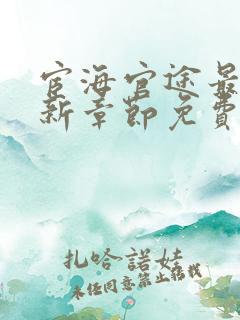 宦海官途最
新章節免費
扎哈諾娃
未经同意禁止转载